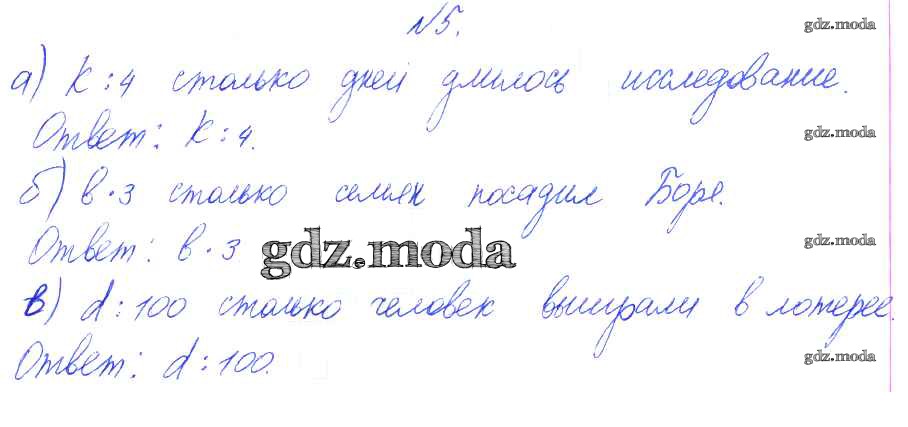 №5.
gdz.moda
а) К : 4 столько дней длилось исследование.
Ответ: К : 4.
gdz.moda
б) в · 3 столько семян посадил Боря.
Ответ: в · 3
gdz.moda
gdz.moda
в) d : 100 столько человек выиграли в лотерее.
Ответ: d : 100.
gdz.moda